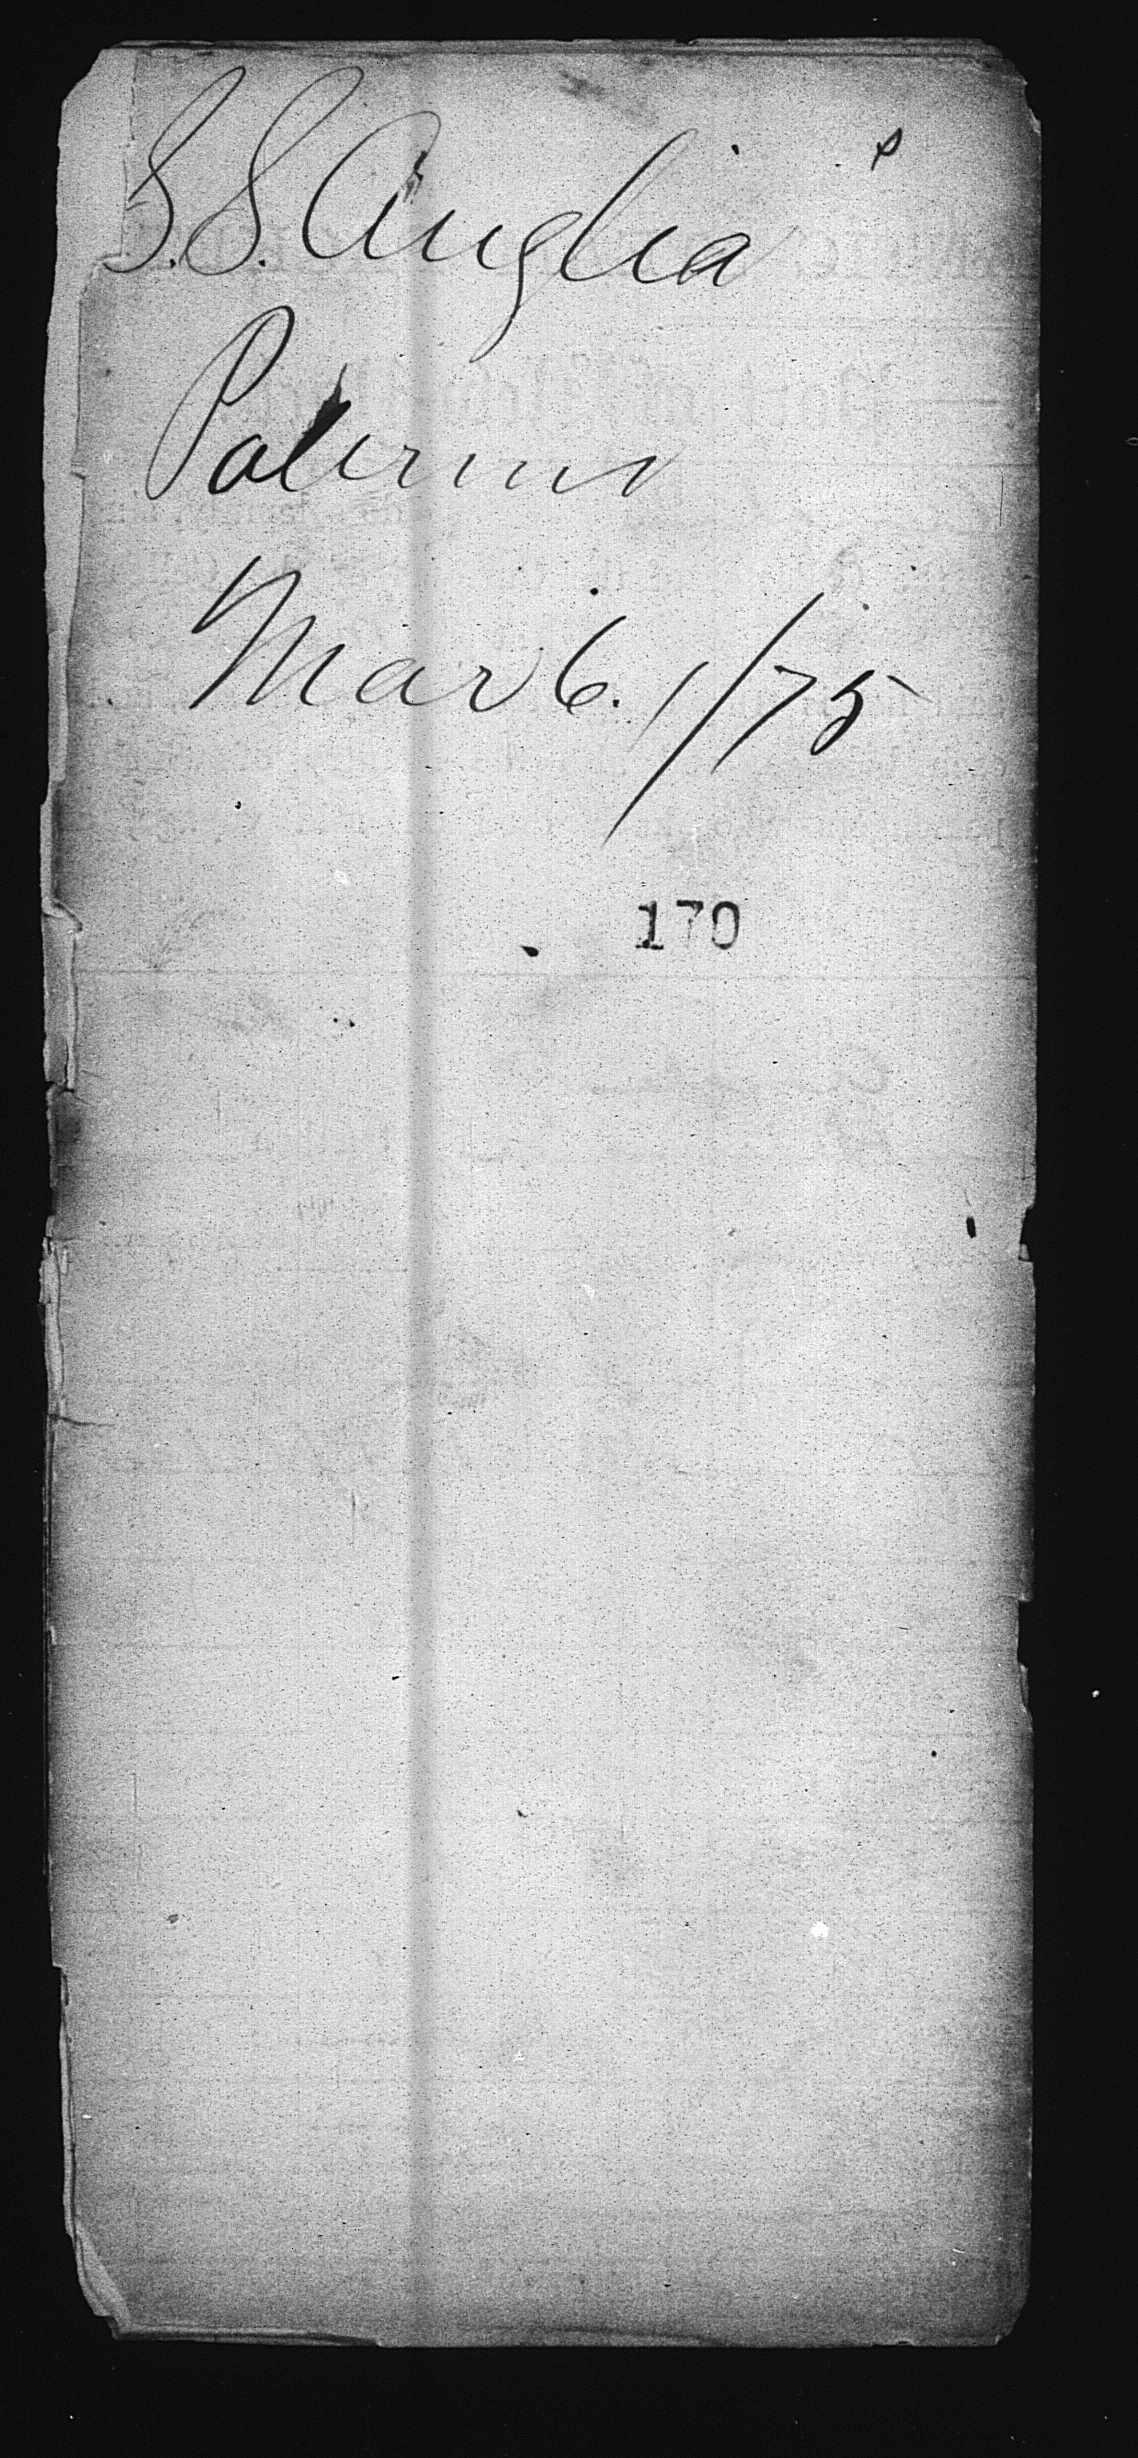 S.S. Anglia
Palermo
Mar 6. 1/75
170